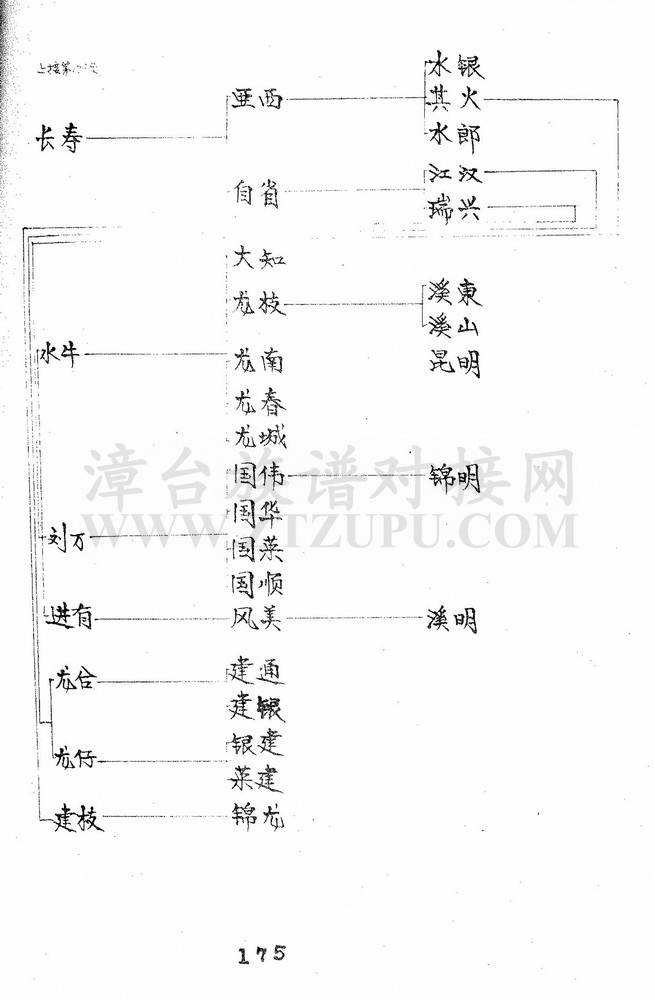 上接第
水银
亚西
其火
长寿
水郎
江汉
自省
瑞兴
大知
龙枝
溪東
溪山
水牛
龙南
昆明
龙春
龙城
国伟
锦明
国华
刘万
国菜
国顺
进有
风美
溪明
龙台
建通
建银
龙仔
银建
菜建
建枝
锦龙
漳台族谱对接网
WWW.ZTZUPU.COM
175